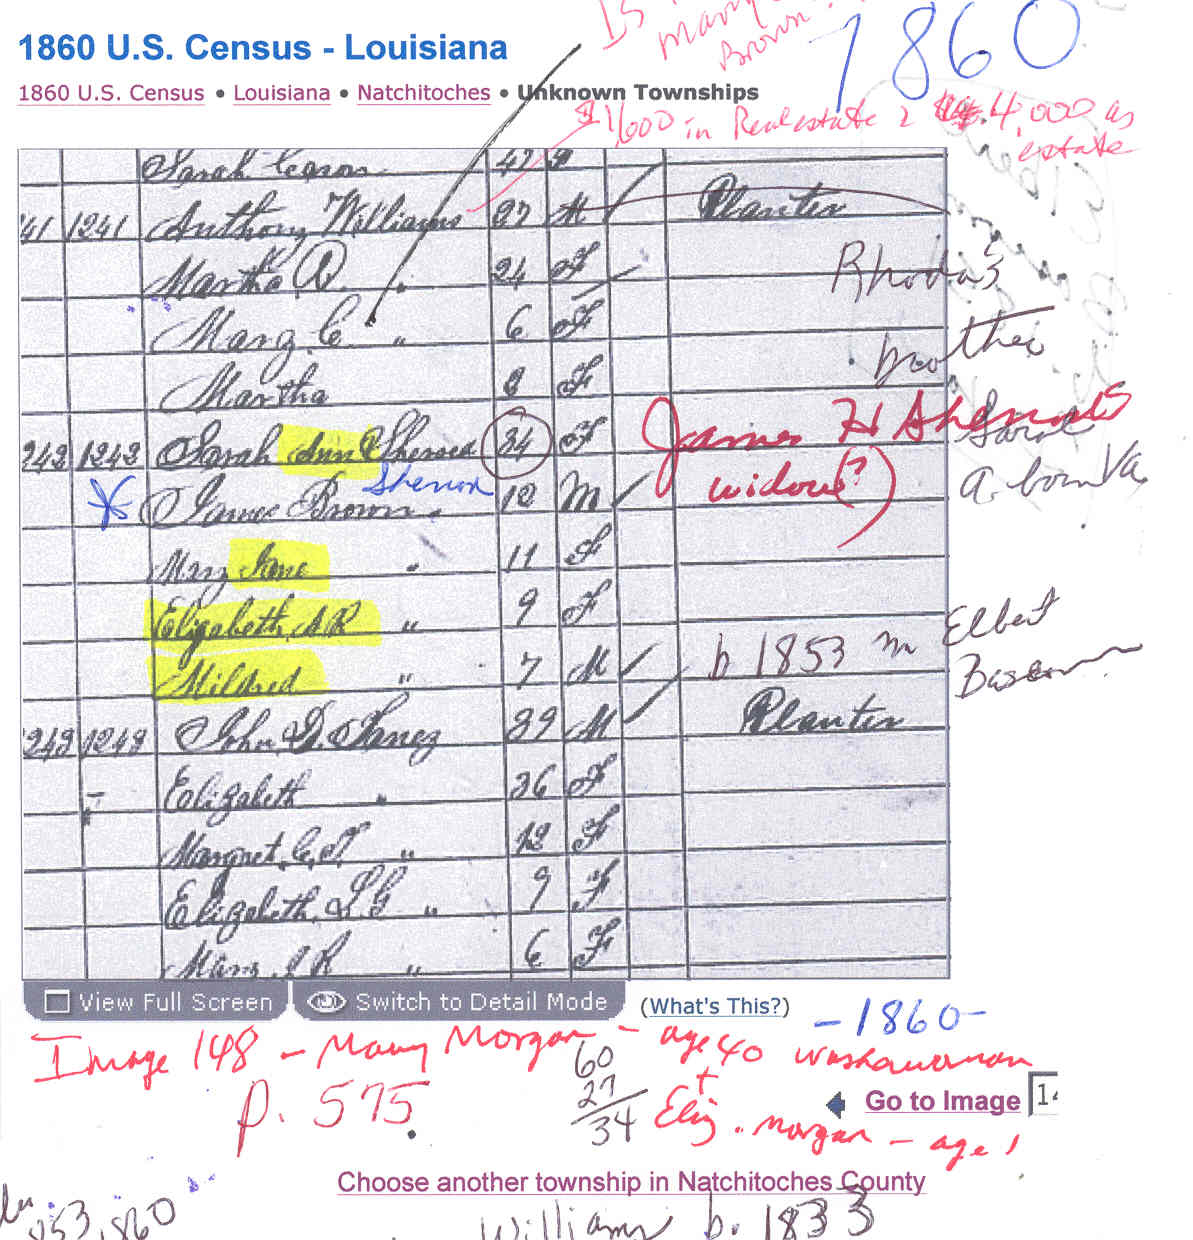 Is
Mary
Brown
1860
1860 U.S. Census - Louisiana
1860 U.S. Census • Louisiana • Natchitoches • Unknown Townships
$1,600 in Real estate 2 4,000 as
estate
Sarah 47 F
41 1241 Anthony Williams 27 M Planter
Martha A. " 24 F
Rhoda's
Mary C. " 6 F
brother
Martha 8 F
James H Shenods
widow?)
242 1242 Sarah Ann 34 F
Sarah
a. born Va
James Brown 12 M
Mary Jane " 11 F
Elizabeth A R " 9 F
Elbert
Mildred " 7 M
b 1853 m
1249 1249 John D. 39 M Planter
Elizabeth " 36 F
Margret C. T. " 12 F
Elizabeth L G " 9 F
Mary R " 6 F
View Full Screen Switch to Detail Mode (What's This?)
-1860-
Image 148 - Mary Morgan - age 40 washawoman
p. 575
60
27
34
+
Eliz. Morgan - age 1
Go to Image 14
Choose another township in Natchitoches County
1860
William b. 1833